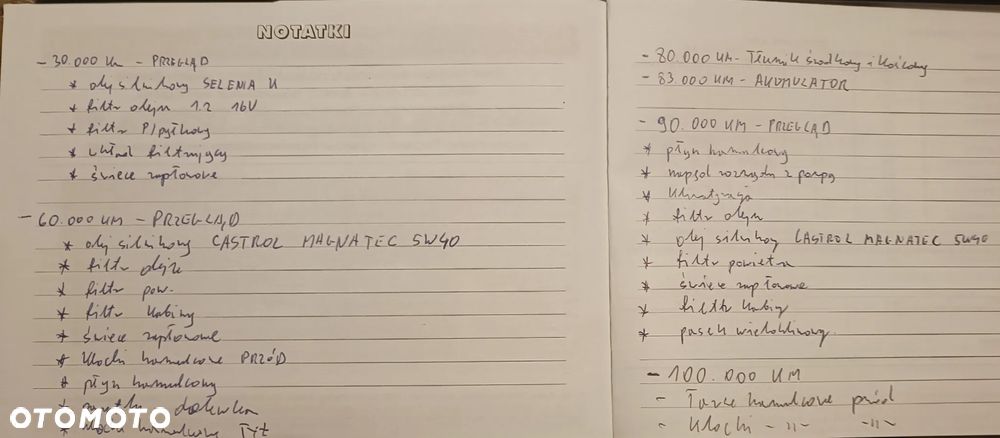 NOTATKI
- 30.000 km - PRZEGLĄD
* olej silnikowy SELENIA K
* filtr oleju 1.2 16V
* filtr P/pyłkowy
* układ filtrujący
* świece zapłonowe
- 60.000 KM - PRZEGLĄD
* olej silnikowy CASTROL MAGNATEC 5W40
* filtr oleju
* filtr pow.
* filtr kabiny
* świece zapłonowe
* klocki hamulcowe PRZÓD
* płyn hamulcowy
* dolewka
* klocki hamulcowe TYŁ
- 80.000 KM - Tłumik środkowy i końcowy
- 83.000 KM - AKUMULATOR
- 90.000 KM - PRZEGLĄD
* płyn hamulcowy
* napęd rozrządu z pompą
* klimatyzacja
* filtr oleju
* olej silnikowy CASTROL MAGNATEC 5W40
* filtr powietrza
* świece zapłonowe
* filtr kabiny
* pasek wieloklinowy
- 100.000 KM
- Tarcze hamulcowe przód
- Klocki -"- -"-
OTOMOTO